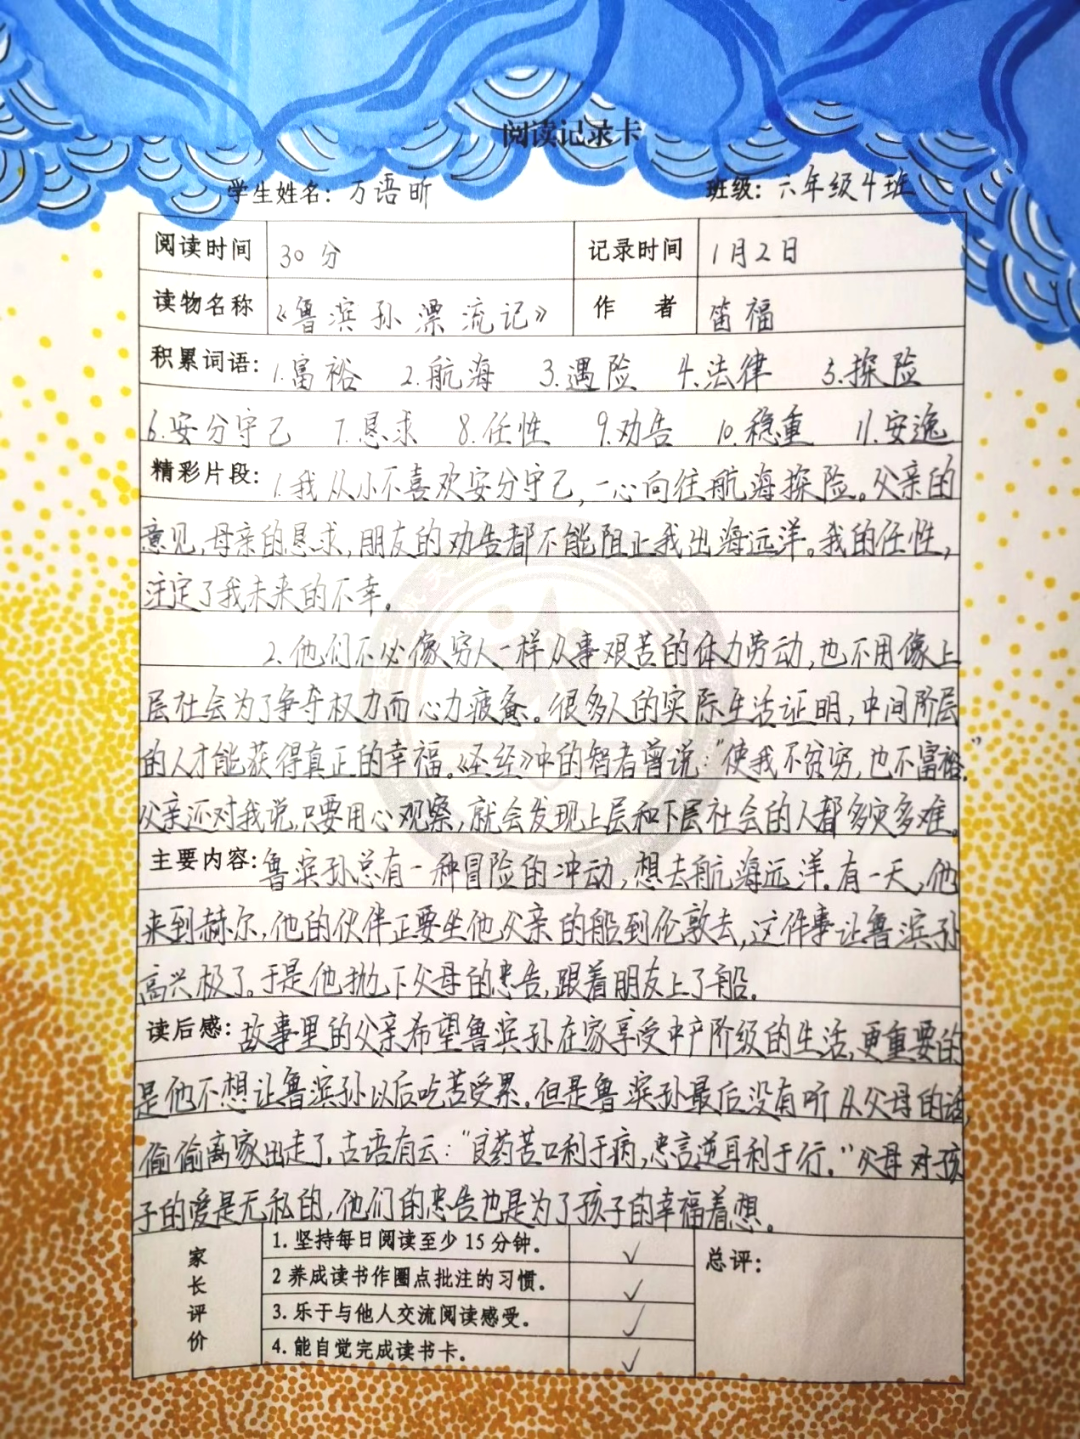 阅读记录卡
学生姓名：万语昕 班级：六年级4班
阅读时间 30分 记录时间 1月2日
读物名称 《鲁滨孙漂流记》 作者 笛福
积累词语：1.富裕 2.航海 3.遇险 4.法律 5.探险
6.安分守己 7.恳求 8.任性 9.劝告 10.稳重 11.安逸
精彩片段：1.我从小不喜欢安分守己，一心向往航海探险。父亲的
意见，母亲的恳求，朋友的劝告都不能阻止我出海远洋。我的任性，
注定了我未来的不幸。
2.他们不必像穷人一样从事艰苦的体力劳动，也不用像上
层社会为了争夺权力而心力疲惫。很多人的实际生活证明，中间阶层
的人才能获得真正的幸福。《圣经》中的智者曾说："使我不贫穷，也不富裕。"
父亲还对我说，只要用心观察，就会发现上层和下层社会的人都多灾多难。
主要内容：鲁滨孙总有一种冒险的冲动，想去航海远洋。有一天，他
来到赫尔，他的伙伴正要坐他父亲的船到伦敦去，这件事让鲁滨孙
高兴极了。于是他抛下父母的忠告，跟着朋友上了船。
读后感：故事里的父亲希望鲁滨孙在家享受中产阶级的生活，更重要的
是他不想让鲁滨孙以后吃苦受累。但是鲁滨孙最后没有听从父母的话，
偷偷离家出走了。古语有云："良药苦口利于病，忠言逆耳利于行。"父母对孩
子的爱是无私的，他们的忠告也是为了孩子的幸福着想。
家长评价
1.坚持每日阅读至少15分钟。 ✓
2 养成读书作圈点批注的习惯。 ✓
3.乐于与他人交流阅读感受。 ✓
4.能自觉完成读书卡。 ✓
总评：